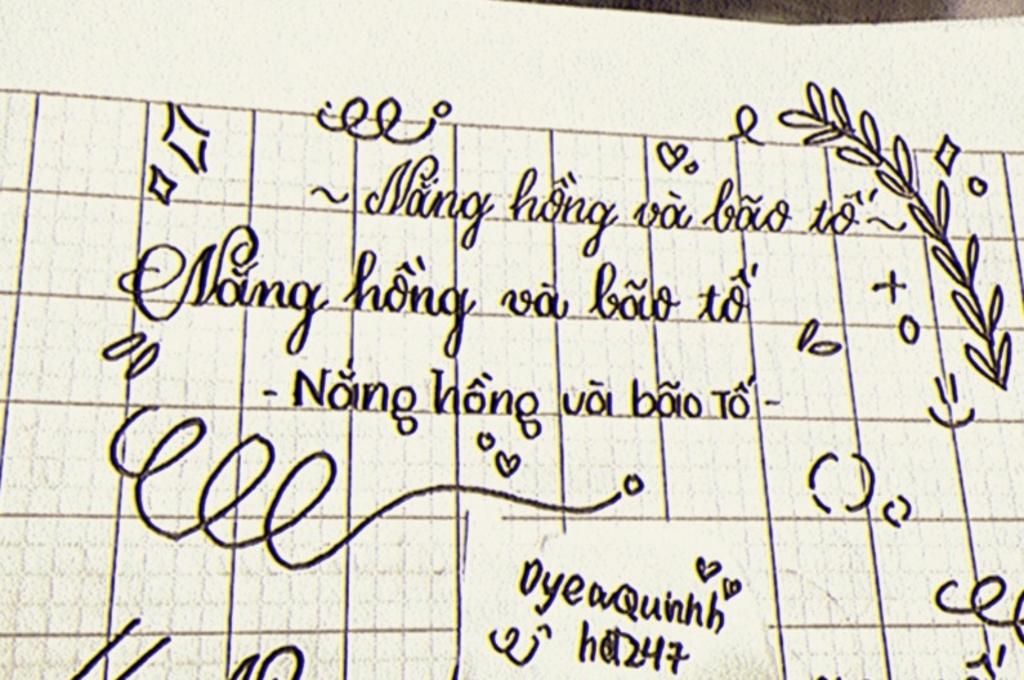 ~ Nắng hồng và bão tố ~
Nắng hồng và bão tố
- Nắng hồng và bão tố -
DyeaQuinhh
hd247